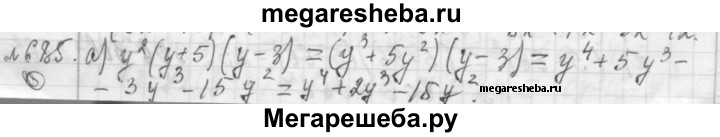 megaresheba.ru
№685. а) y²(y+5)(y-3) = (y³+5y²)(y-3) = y⁴+5y³-
- 3y³-15y² = y⁴+2y³-15y².
megaresheba.ru
Мегарешеба.ру